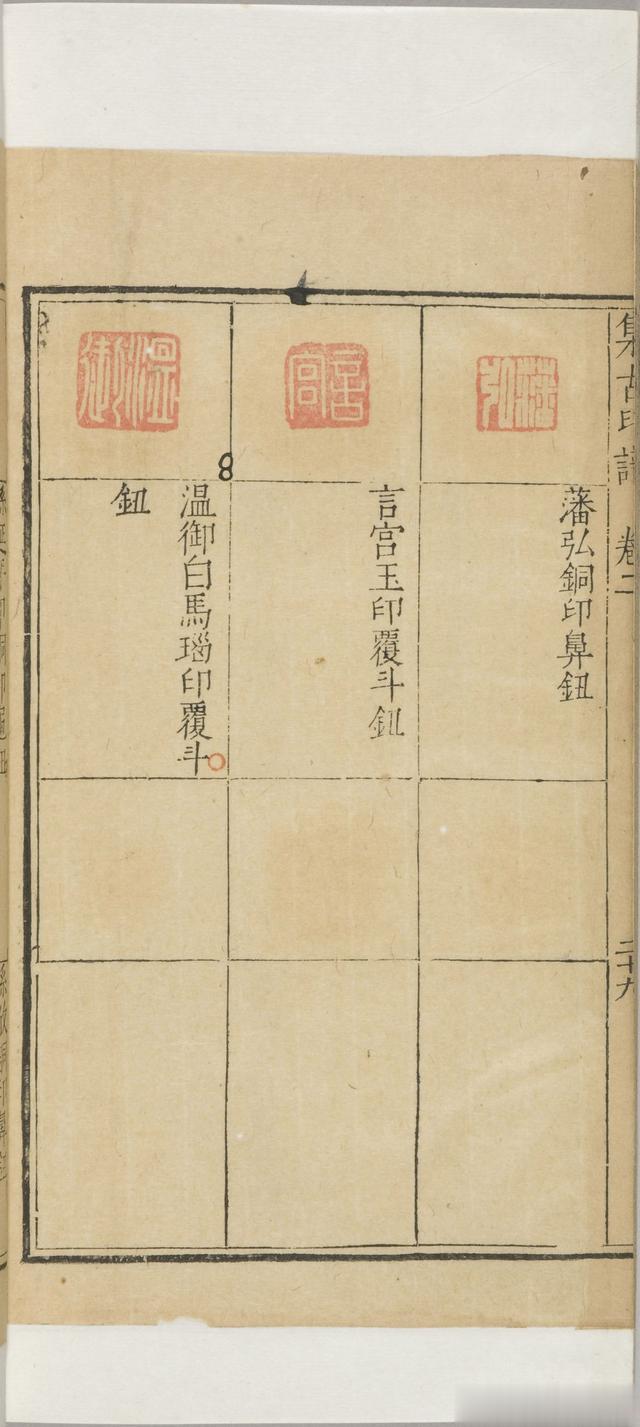 集古印譜 卷二
二十九
藩弘銅印鼻鈕
言宫玉印覆斗鈕
温御白馬瑙印覆斗
鈕
8